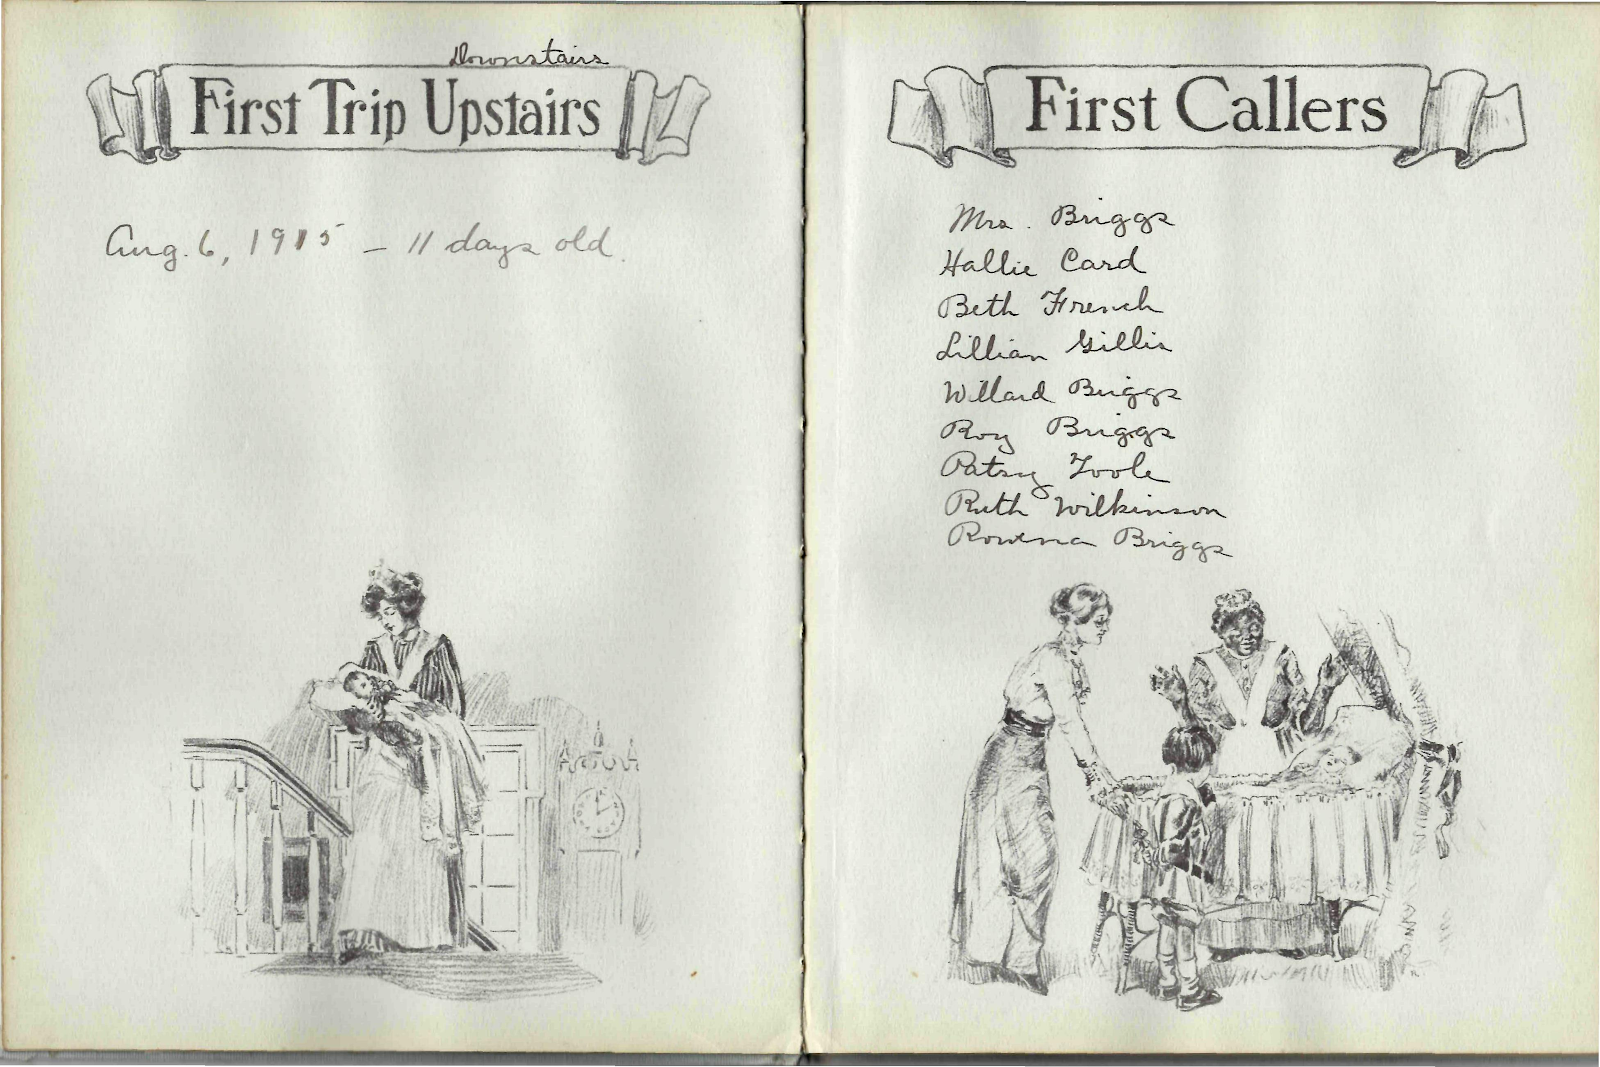 Downstairs
First Trip Upstairs
Aug. 6, 1915 – 11 days old.
First Callers
Mrs. Briggs
Hallie Card
Beth French
Lillian Gillis
Willard Briggs
Roy Briggs
Patsy Toole
Ruth Wilkinson
Rowena Briggs